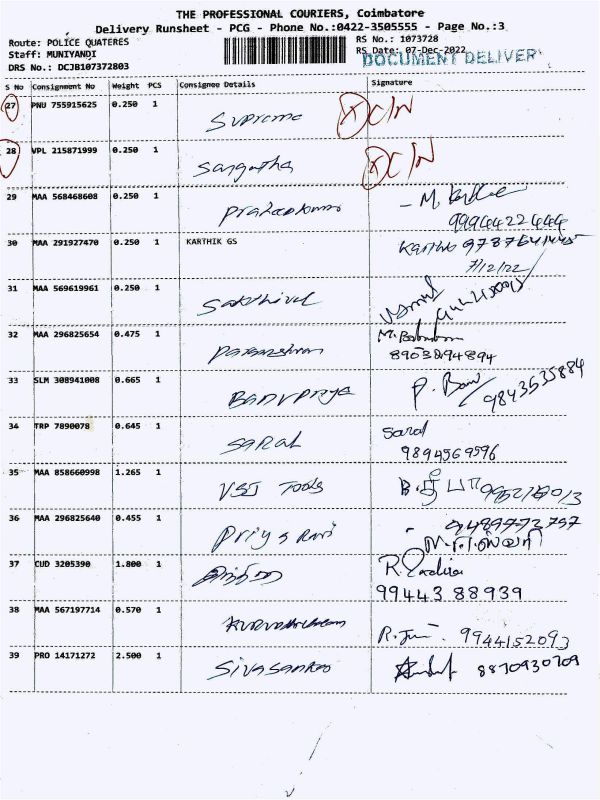 THE PROFESSIONAL COURIERS, Coimbatore
Delivery Runsheet - PCG - Phone No.:0422-3505555 - Page No.:3
Route: POLICE QUATERES
RS No.: 1073728
Staff: MUNIYANDI
RS Date: 07-Dec-2022
DRS No.: DCJB107372803
DOCUMENT DELIVER
S No Consignment No Weight PCS Consignee Details Signature
27 PNU 755915625 0.250 1 Supreme X C/N
28 VPL 215871999 0.250 1 Sangatha X C/N
29 MAA 568468608 0.250 1 - M.
9994422444
30 MAA 291927470 0.250 1 KARTHIK GS
7/12/22
31 MAA 569619961 0.250 1 Sakthivel
32 MAA 296825654 0.475 1
8903894894
33 SLM 308941008 0.665 1 BANUPRIYA P. Banu
9843535884
34 TRP 7890078 0.645 1 SARAL Saral
9894569596
35 MAA 858660998 1.265 1 VSJ Tools
36 MAA 296825640 0.455 1 Priya Rani
9489772757
37 CUD 3205390 1.800 1 R.
99443 88939
38 MAA 567197714 0.570 1 9944152093
39 PRO 14171272 2.500 1 SIVASANKAR 8870930709